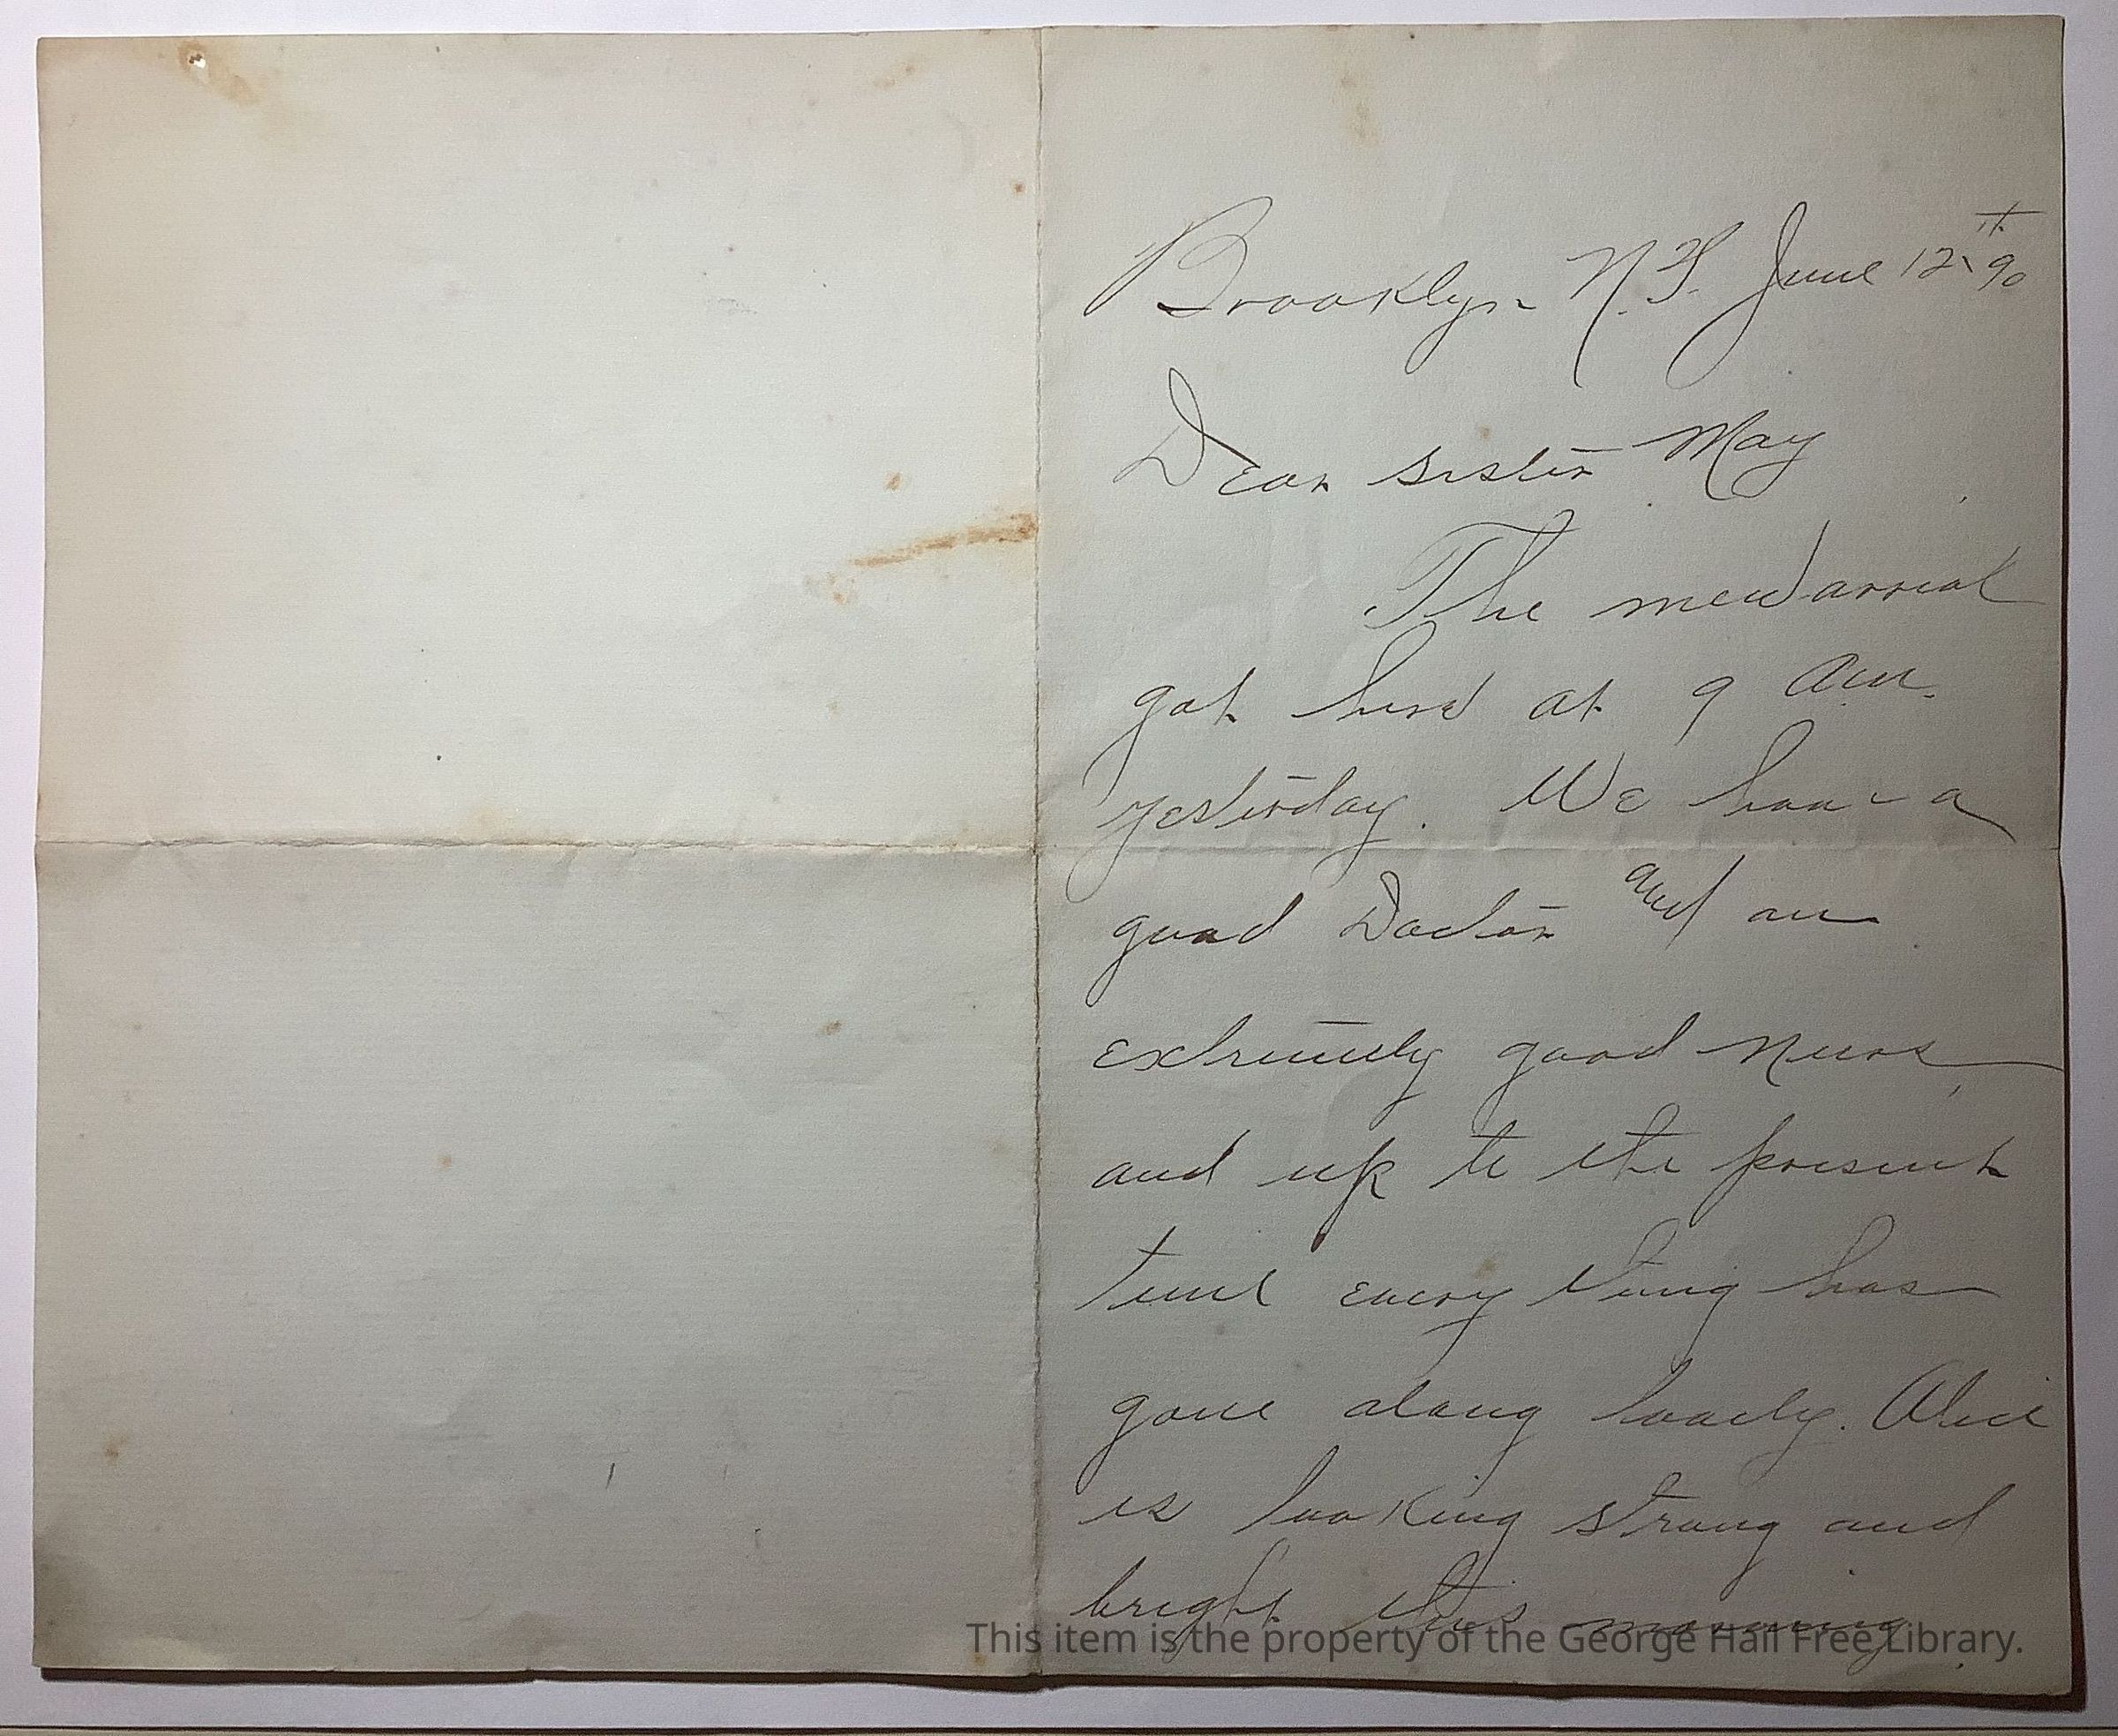 Brooklyn N.Y. June 12th 90
Dear sister May
The new arrival
got here at 9 am.
yesterday. We have a
good Doctor and an
extremely good nurse,
and up to the present
time every thing has
gone along lovely. Alice
is looking strong and
bright this morning.
This item is the property of the George Hail Free Library.